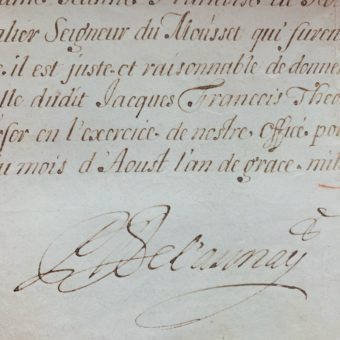 Jeanne Françoise de
Seigneur du Mousset qui furen
il est juste et raisonnable de donner
dudit Jacques François Theo
en l'exercice de nostre office pou
mois d'Aoust l'an de grace mil
Delaunay